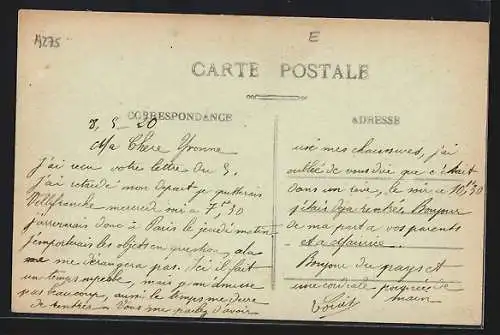 A275
E
CARTE POSTALE
CORRESPONDANCE
ADRESSE
8, 5 - 20
Ma Chère Yvonne
J'ai reçu votre lettre du 5.
J'ai retardé mon départ je quitterais
Villefranche mercredi soir à 7,h30
j'arriverais donc à Paris le jeudi matin.
J'emporterais les objets en question, cela
me me dérangera pas. Ici il fait
un temps superbe, mais je m'amuse
pas beaucoup, aussi le temps me dure
de rentrer. Vous me parlez d'avoir
usé mes chaussures, j'ai
oublié de vous dire que c'était
dans un rêve, le soir à 10,h30
j'étais déjà rentrée. Bonjour
de ma part à vos parents
et à Maurice..
Bonjour du pays et
une cordiale poignée de
main